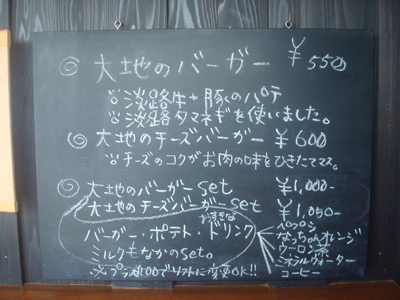 ◎ 大地のバーガー ¥550
◎淡路牛+豚くのパテ
◎淡路タマネギを使いました。
◎ 大地のチーズバーガー ¥600
◎チーズのコクがお肉の味をひきたてマス。
◎ 大地のバーガー set ¥1,000-
大地のチーズバーガー set ¥1,050-
おすきな
バーガー・ポテト・ドリンク
ペプシ
なっちゃんオレンジ
ウーロン茶
ミネラルウォーター
コーヒー
ミルクもなかのset。
※プラス100でソフトに変更OK!!